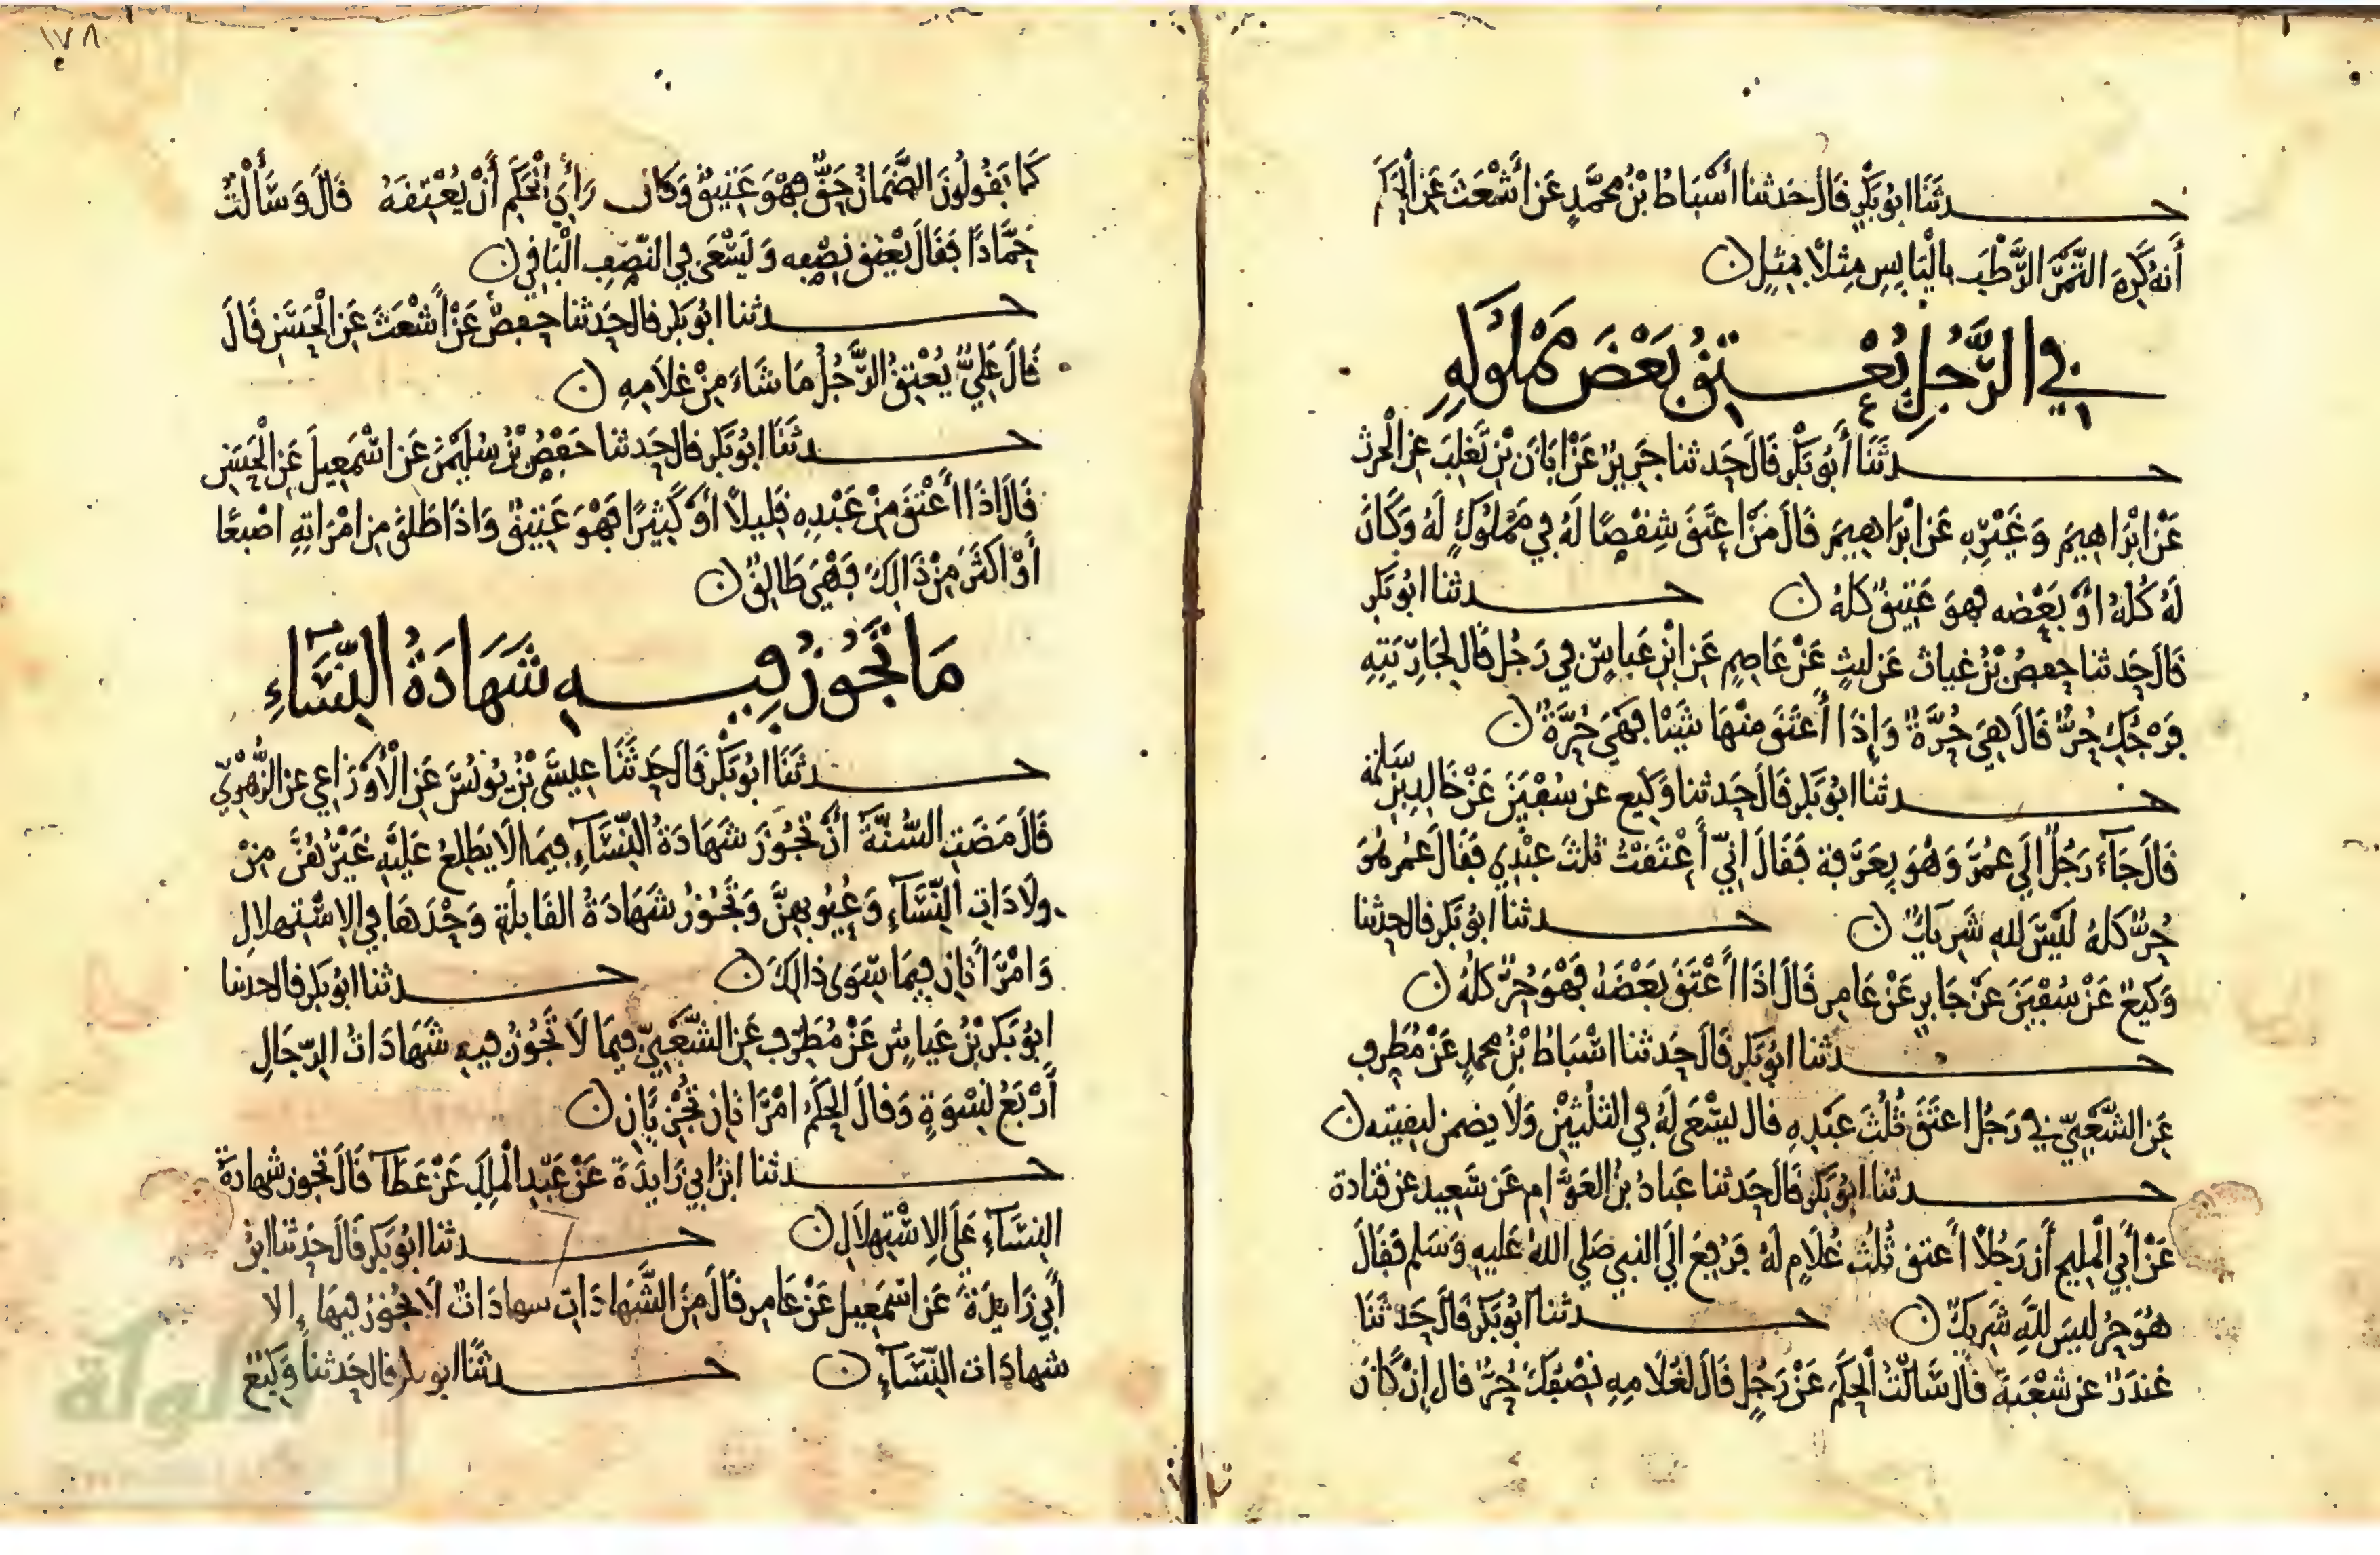 حدثنا ابو بكر قال حدثنا أسباط بن محمد عن أشعث عن الحكم
أنه كره التمر الرطب باليابس مثلا بمثل
في الرجل يعتق بعض مملوكه
حدثنا أبو بكر قال حدثنا جرير عن ابان بن تغلب عن الحرث
عن ابراهيم وغيره عن ابراهيم قال من اعتق شقصا له في مملوك له وكان
له كله او بعضه فهو عتيق كله حدثنا ابو بكر
قال حدثنا حفص بن غياث عن ليث عن عاصم عن ابن عباس في رجل قال لجاريته
فرجك حر قال هي حرة وإذا أعتق منها شيئا فهي حرة
حدثنا ابو بكر قال حدثنا وكيع عن سفين عن خالد بن سلمة
قال جآء رجل الى عمر وهو بعرفة فقال اني أعتقت ثلث عبدي فقال عمر هو
حر كله ليس لله شريك حدثنا ابو بكر قال حدثنا
وكيع عن سفين عن جابر عن عامر قال اذا أعتق بعضه فهو حر كله
حدثنا ابو بكر قال حدثنا اسباط بن محمد عن مطرف
عن الشعبي في رجل اعتق ثلث عبده قال يسعى له في الثلثين ولا يضمن لبقيته
حدثنا ابو بكر قال حدثنا عباد بن العوام عن سعيد عن قتادة
عن أبي المليح أن رجلا أعتق ثلث غلام له فرفع الى النبي صلى الله عليه وسلم فقال
هو حر ليس لله شريك حدثنا ابو بكر قال حدثنا
غندر عن شعبة قال سالت الحكم عن رجل قال لغلامه نصفك حر قال إن كان
١٧٨
كما يقولون الضمان حق فهو عتيق وكان رأي الحكم أن يعتقه قال وسألت
حمادا فقال يعتق نصفه وليسعى في النصف الباقي
حدثنا ابو بكر قال حدثنا حفص عن أشعث عن الحسن قال
قال علي يعتق الرجل ما شاء من غلامه
حدثنا ابو بكر قال حدثنا حفص بن سليمن عن اسمعيل عن الحسن
قال اذا أعتق من عبده قليلا أو كثيرا فهو عتيق واذا طلق من امراته اصبعا
أو اكثر من ذالك فهي طالق
ما تجوز فيه شهادة النسآء
حدثنا ابو بكر قال حدثنا عيسى بن يونس عن الأوزاعي عن الزهري
قال مضت السنة أن تجوز شهادة النسآء فيما لا يطلع عليه غيرهن من
ولادات النسآء وعيوبهن وتجوز شهادة القابلة وحدها في الاستهلال
وامرأتان فيما سوى ذالك حدثنا ابو بكر قال حدثنا
ابو بكر بن عياش عن مطرف عن الشعبي فيما لا تجوز فيه شهادات الرجال
أربع نسوة وقال الحكم امراتان تجزيان
حدثنا ابن ابي زايدة عن عبد الملك عن عطآ قال تجوز شهادة
النسآء على الاستهلال حدثنا ابو بكر قال حدثنا ابن
أبي زايدة عن اسمعيل عن عامر قال من الشهادات شهادات لا تجوز فيها إلا
شهادات النسآء حدثنا ابو بكر قال حدثنا وكيع
الألوكة